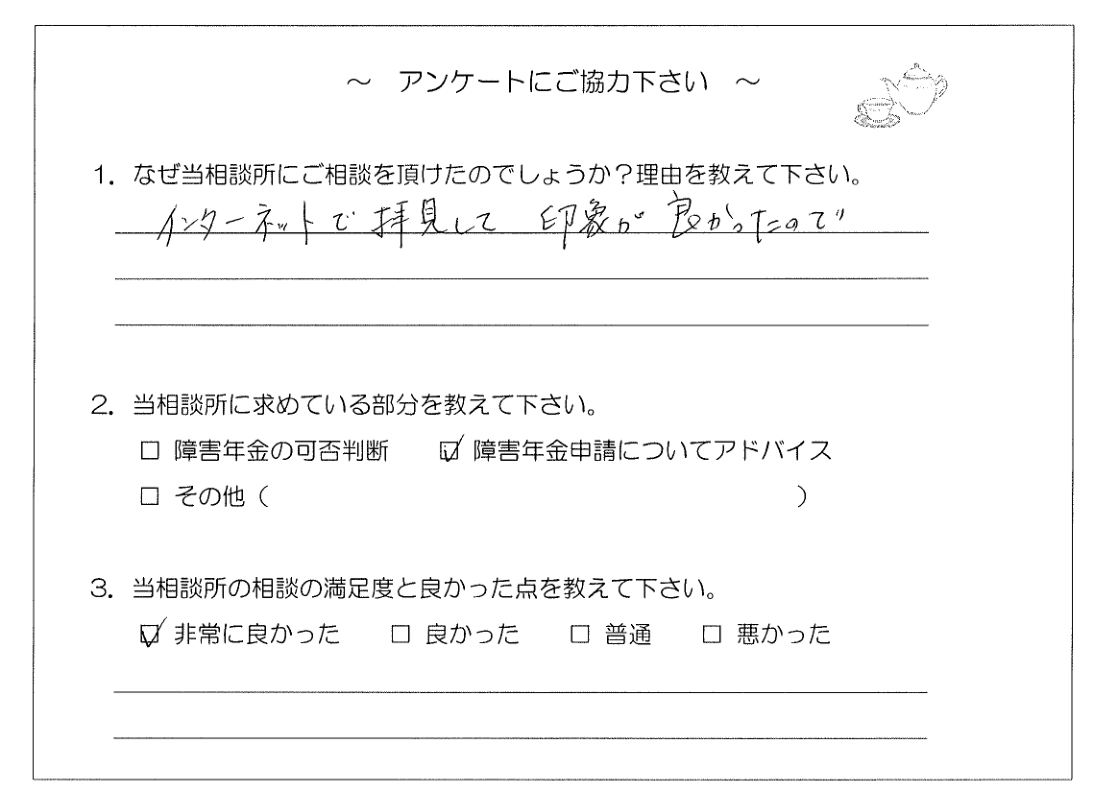 ～ アンケートにご協力下さい ～
1. なぜ当相談所にご相談を頂けたのでしょうか？理由を教えて下さい。
インターネットで拝見して 印象が良かったので
2. 当相談所に求めている部分を教えて下さい。
□ 障害年金の可否判断 ☑ 障害年金申請についてアドバイス
□ その他（ ）
3. 当相談所の相談の満足度と良かった点を教えて下さい。
☑ 非常に良かった □ 良かった □ 普通 □ 悪かった